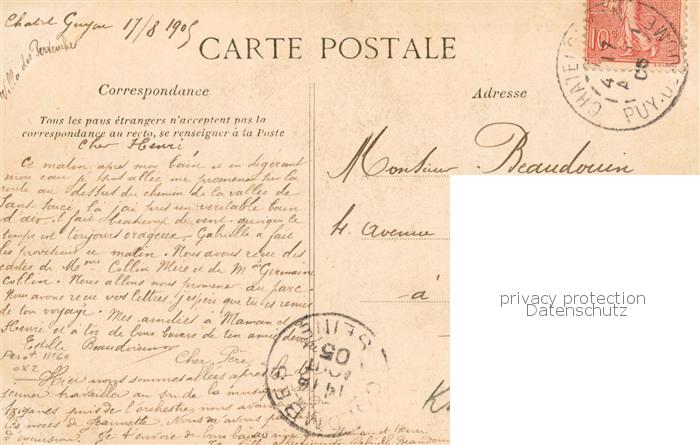 Chatel Guyon 17/8 1905
CARTE POSTALE
Correspondance
Tous les pays étrangers n'acceptent pas la
correspondance au recto, se renseigner à la Poste
Adresse
Cher Henri
Ce matin après mon bain et en digerant
mon eau je suis allée me promener sur la
route au dessus du chemin de la vallée de
Sans Souci là j'ai pris un veritable bain
d'air. Il fait beaucoup de vent quoique le
temps est toujours orageux. Gabrielle a fait
les provisions ce matin. Nous avons reçu des
cartes de Mme Collin Mère et de Mme Germaine
Collin. Nous allons nous promener au parc.
Nous avons reçu vos lettres. J'espère que tu es remis
de ton voyage. Mes amitiés à Maman et
Henri et à toi de bons baisers de ton amie dévouée
Estelle Beaudouin
Cher Père
Hier nous sommes allées après le
travailler au son de la musique
tziganes puis de l'orchestre, nous avons
les noces de Jeannette. Nous
Je t'envoie de bons baisers
Monsieur Beaudouin
4. Avenue
à
10c
CHATEL
PUY-D
17
05
SEINE
05
privacy protection
Datenschutz